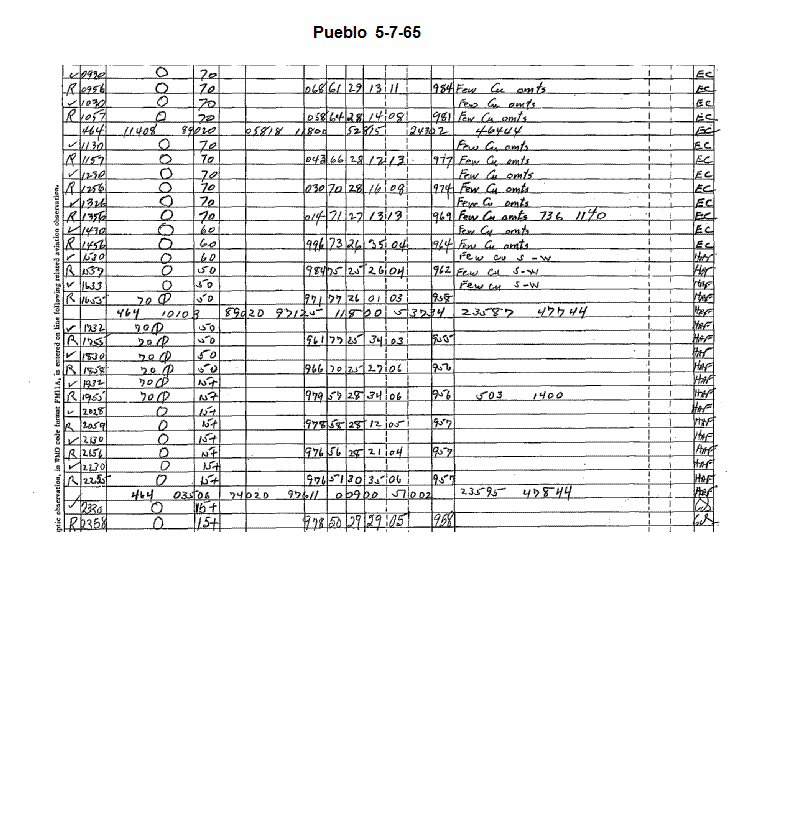 Pueblo 5-7-65
✓ 0930 O 70 EC
R 0956 O 70 068 61 29 13 11 984 Few Cu omts EC
✓ 1030 O 70 Few Cu omts EC
R 1057 O 70 058 64 28 14 08 981 Few Cu omts EC
464 11408 89020 05818 11800 52815 24302 46444 EC
✓ 1130 O 70 Few Cu omts EC
R 1157 O 70 043 66 28 12 13 977 Few Cu omts EC
✓ 1230 O 70 Few Cu omts EC
R 1256 O 70 030 70 28 16 08 974 Few Cu omts EC
✓ 1326 O 70 Few Cu omts EC
R 1356 O 70 014 71 27 13 13 969 Few Cu omts 736 1140 EC
✓ 1430 O 60 Few Cu omts EC
R 1456 O 60 996 73 26 35 04 964 Few Cu omts EC
✓ 1530 O 60 Few cu S-W
R 1557 O 50 984 75 25 26 04 962 Few cu S-W
✓ 1633 O 50 Few cu S-W
R 1655 70 50 971 77 26 01 03 958
464 10103 89020 97125 11800 53734 23587 47744
✓ 1732 70 50
R 1755 70 50 961 77 25 34 03 955
✓ 1830 70 50
R 1858 70 50 966 70 25 27 06 956
✓ 1932 70 15+
R 1955 70 15+ 979 59 28 34 06 956 503 1400
✓ 2028 O 15+
R 2059 O 15+ 978 58 28 12 05 957
✓ 2130 O 15+
R 2156 O 15+ 976 56 28 21 04 957
✓ 2230 O 15+
R 2255 O 15+ 976 51 30 35 06 957
464 03506 74020 97611 00900 51002 23595 47844
✓ 2330 O 15+
R 2358 O 15+ 978 50 29 29 05 958
is entered on line following related aviation observation.